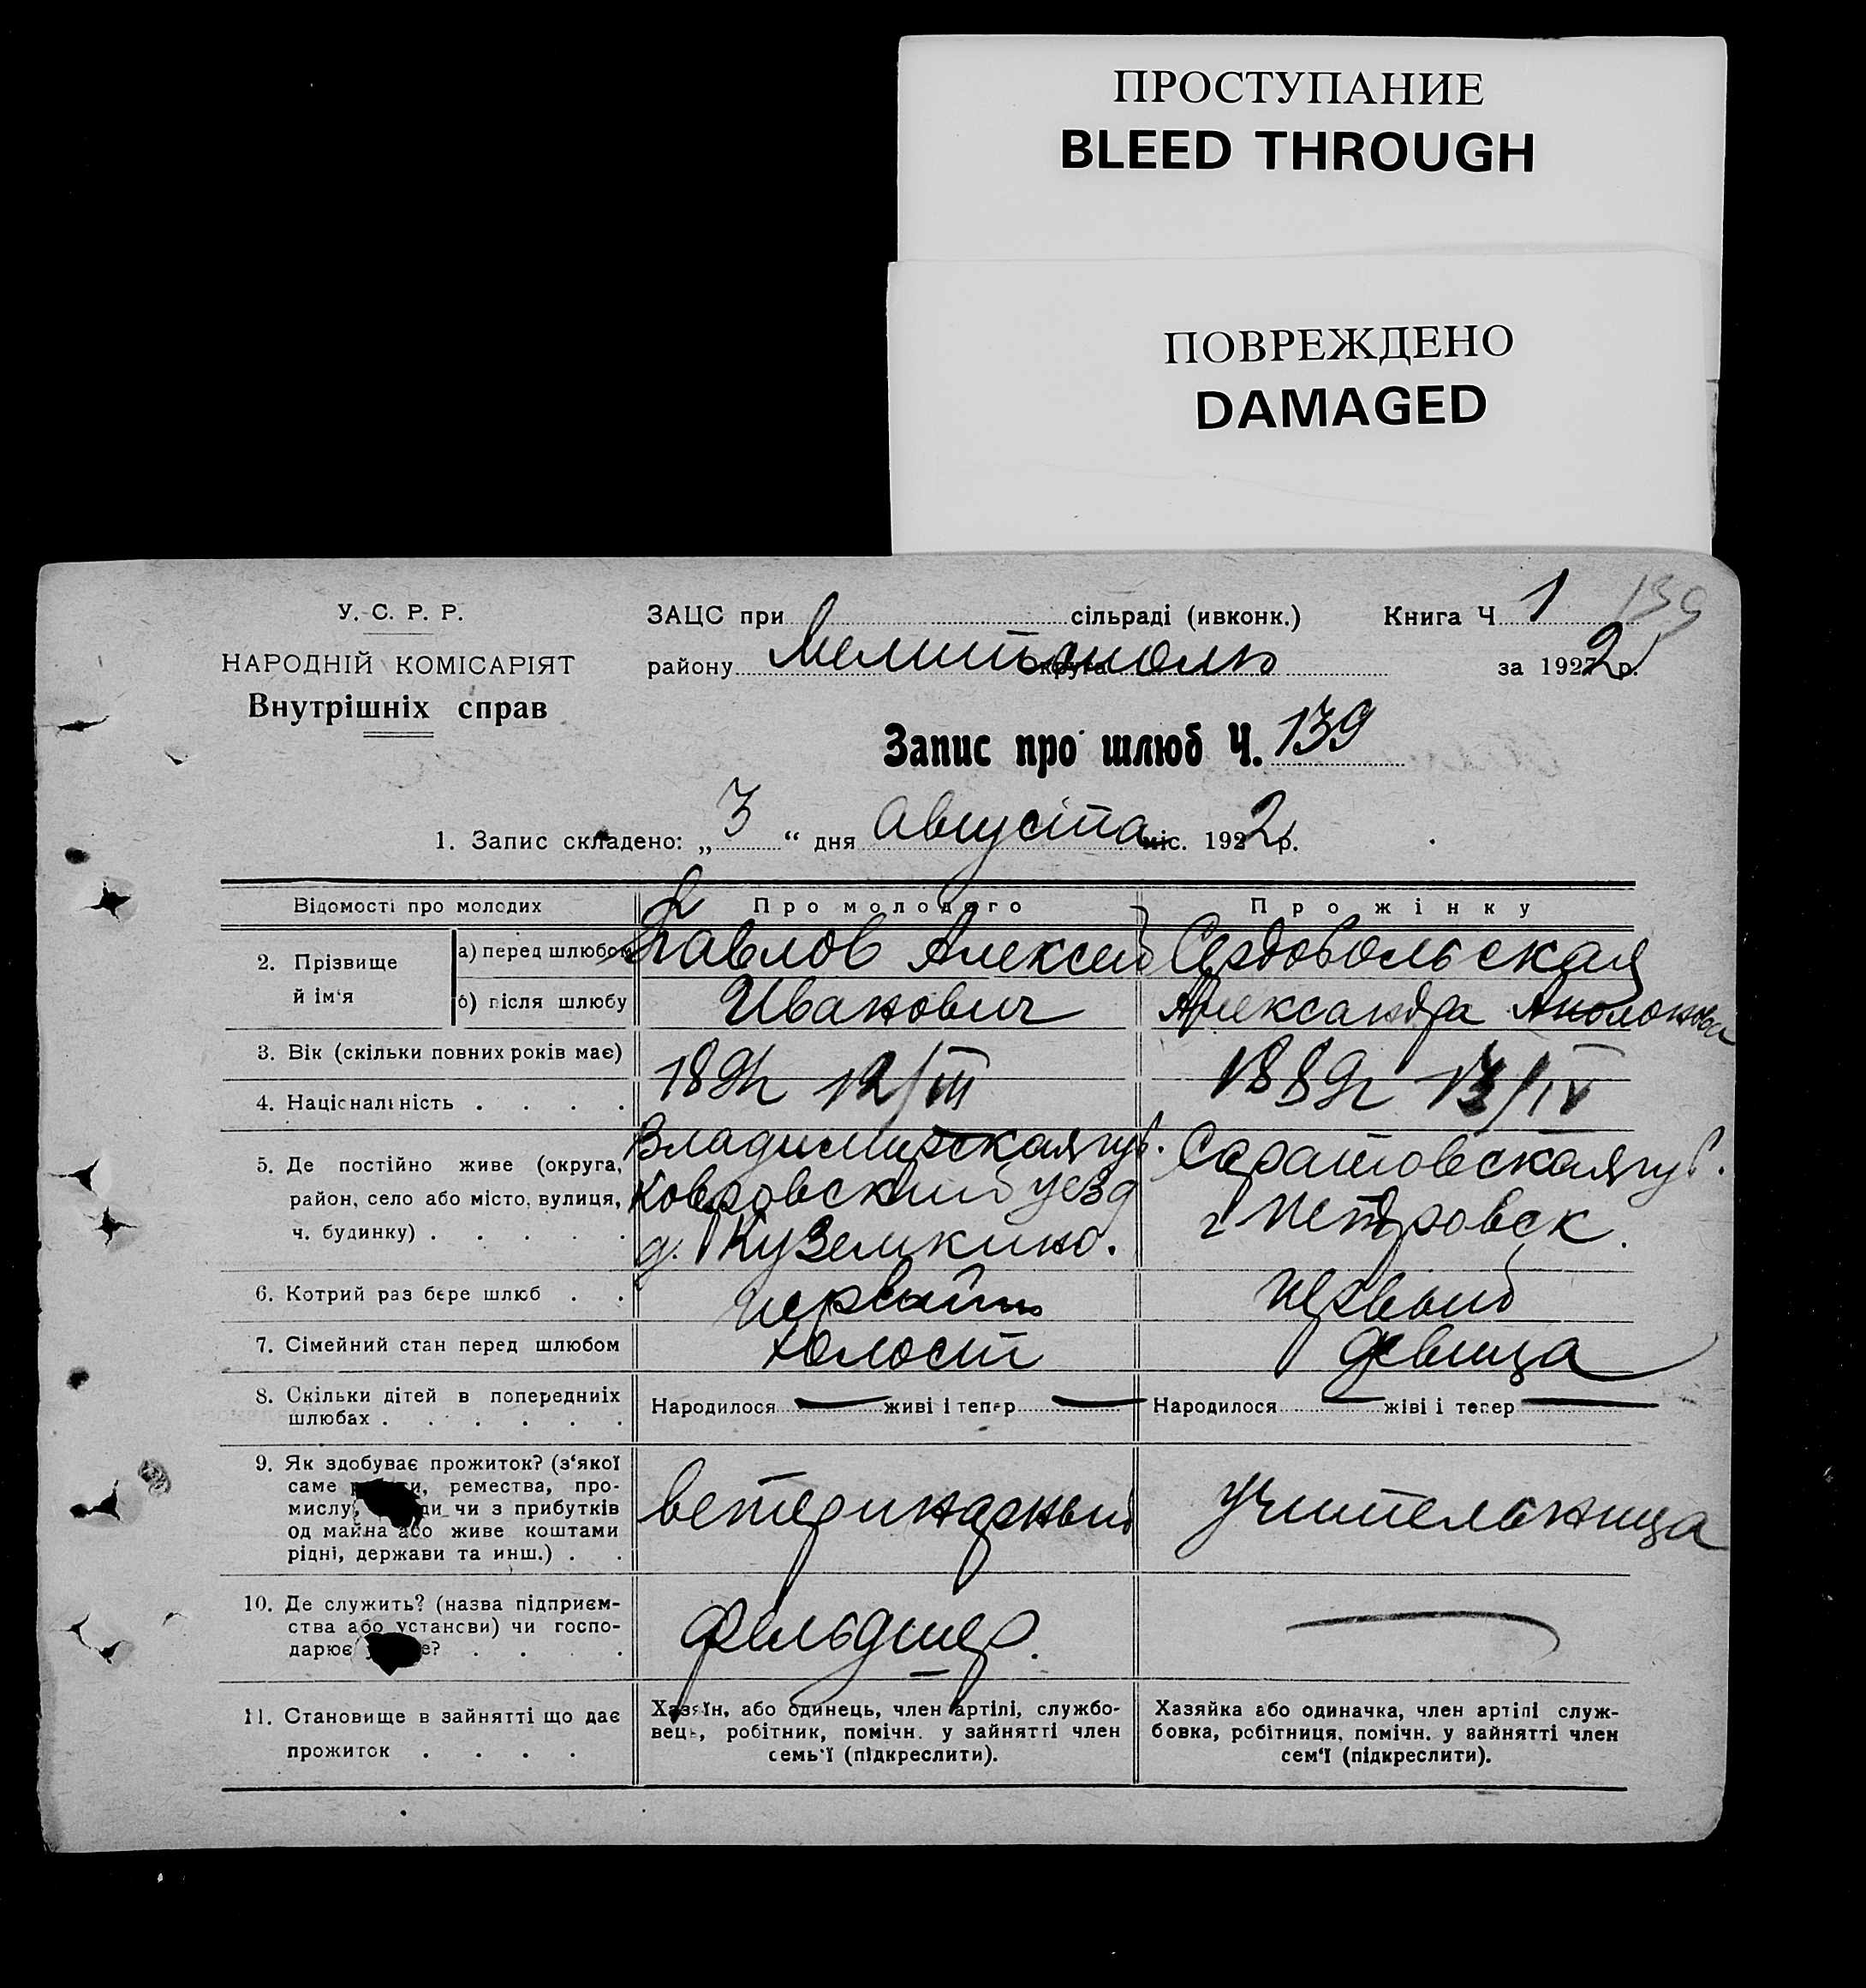 ПРОСТУПАНИЕ
BLEED THROUGH
ПОВРЕЖДЕНО
DAMAGED
У. С. Р. Р.
НАРОДНІЙ КОМІСАРІЯТ
Внутрішніх справ
ЗАЦС при сільраді (ивконк.) Книга Ч 1 139
району Мелитополь округа за 1922 р.
Запис про шлюб Ч. 139
1. Запис складено: „3“ дня Августа міс. 1922 р.
Відомості про молодих Про молодого Про жінку
2. Прізвище й ім‘я
а) перед шлюбом Павлов Алексей Сердобольская
б) після шлюбу Иванович Александра
3. Вік (скільки повних років має)
12/III 1889г /IV
4. Національність . . . .
5. Де постійно живе (округа, район, село або місто, вулиця, ч. будинку) . . . . .
Владимирская губ. Саратовская губ.
Ковровский уезд г Петровск.
д. Куземкино.
6. Котрий раз бере шлюб . . первый первый
7. Сімейний стан перед шлюбом холост девица
8. Скільки дітей в попередніх Народилося — живі і тепер — Народилося — жіві і тепер —
шлюбах . . . . . .
9. Як здобуває прожиток? (з‘якої
саме ремества, про-
мислу, чи з прибутків ветеринарный учительница
од майна або живе коштами
рідні, держави та инш.) . .
10. Де служить? (назва підприєм-
ства або установи) чи госпо- фельдшер. —
дарює . . . .
11. Становище в зайнятті що дає Хазяїн, або одинець, член артілі, службо- Хазяйка або одиначка, член артілі служ-
прожиток . . . . вець, робітник, помічн. у зайнятті член бовка, робітниця, помічн. у зайнятті член
семь‘ї (підкреслити). сем‘ї (підкреслити).